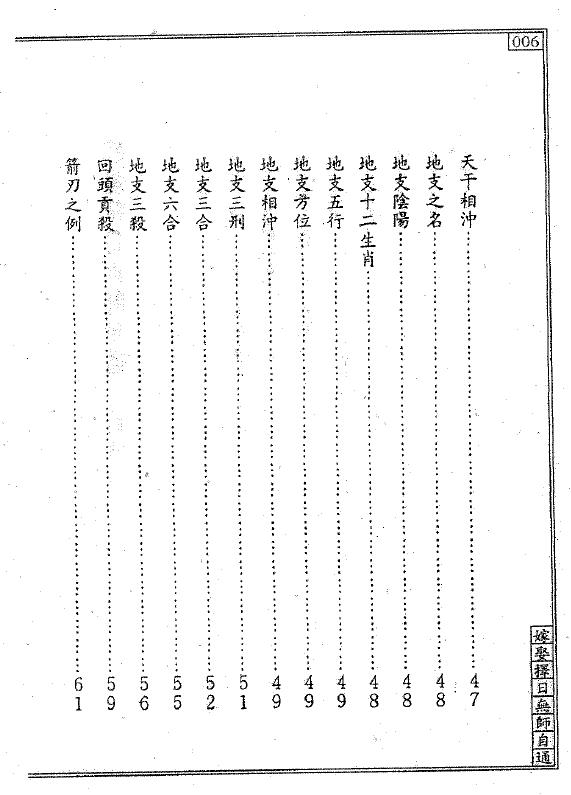 006
天干相沖 47
地支之名 48
地支陰陽 48
地支十二生肖 48
地支五行 49
地支方位 49
地支相沖 49
地支三刑 51
地支三合 52
地支六合 55
地支三殺 56
回頭貢殺 59
箭刃之例 61
嫁娶擇日無師自通